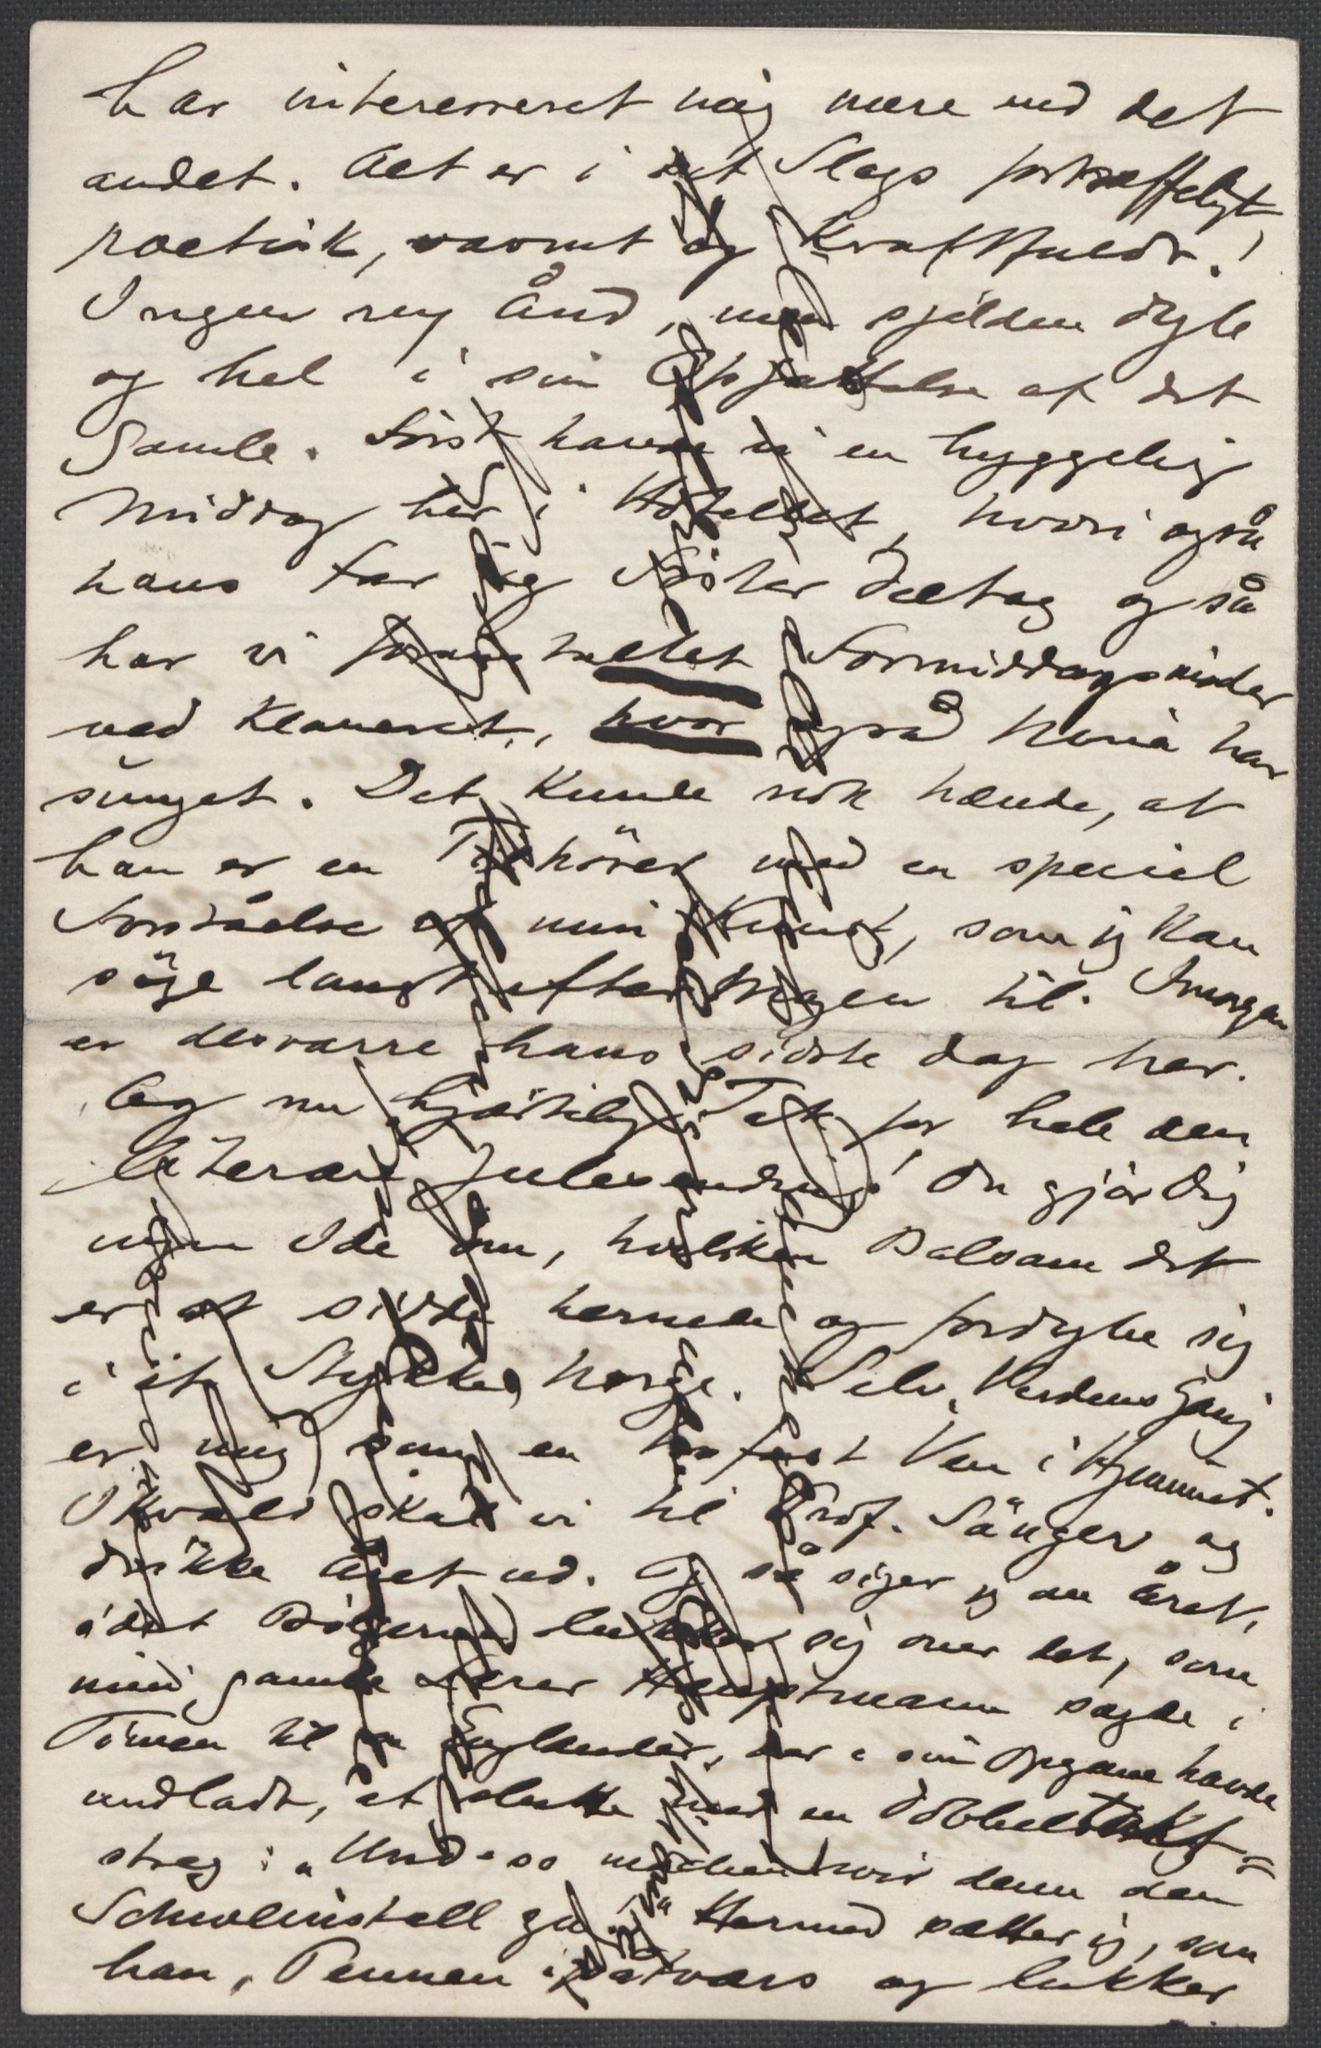 har interesseret mig mere end det
andet. Alt er i sit Slags fortræffeligt,
poetisk, varmt og kraftfuldt!
Ingen ny Ånd, men sjelden dyb
og hel i sin Opfattelse af det
Gamle. Først havde vi en hyggelig
Middag her i Hotellet, hvori også
hans Far og Söster deltog og så
har vi foranstaltet Formiddagsmöder
ved Klaveret, hvor også Nina har
sunget. Det kunde nok hænde, at
han er en Tilhörer med en speciel
Forståelse af min Kunst, som jeg kan
söge langt efter Magen til. Imorgen
er desværre hans sidste Dag her.
Og nu hjærtelig Tak for hele den
literære Julesending! Du gjör Dig
ingen Ide om, hvilken Balsam det
er at sidde hernede og fordybe sig
i et Stykke Norge. Selv Verdens Gang
er mig som en trofast Ven i Hjemmet.
Ikvæld skal vi til Prof. Sänger og
drikke Året ud. Og så siger jeg om Året,
idet Bölgerne lukker sig over det, som
min gamle Lærer Hauptmann sagde i
Timen til en Englænder, der i sin Opgave havde
undladt, at slutte med en Dobbelttakt-
streg: "Und so machen wir denn den
Schweinstall zu!" Hermed sætter jeg, som
han, Pennen påtværs og lukker